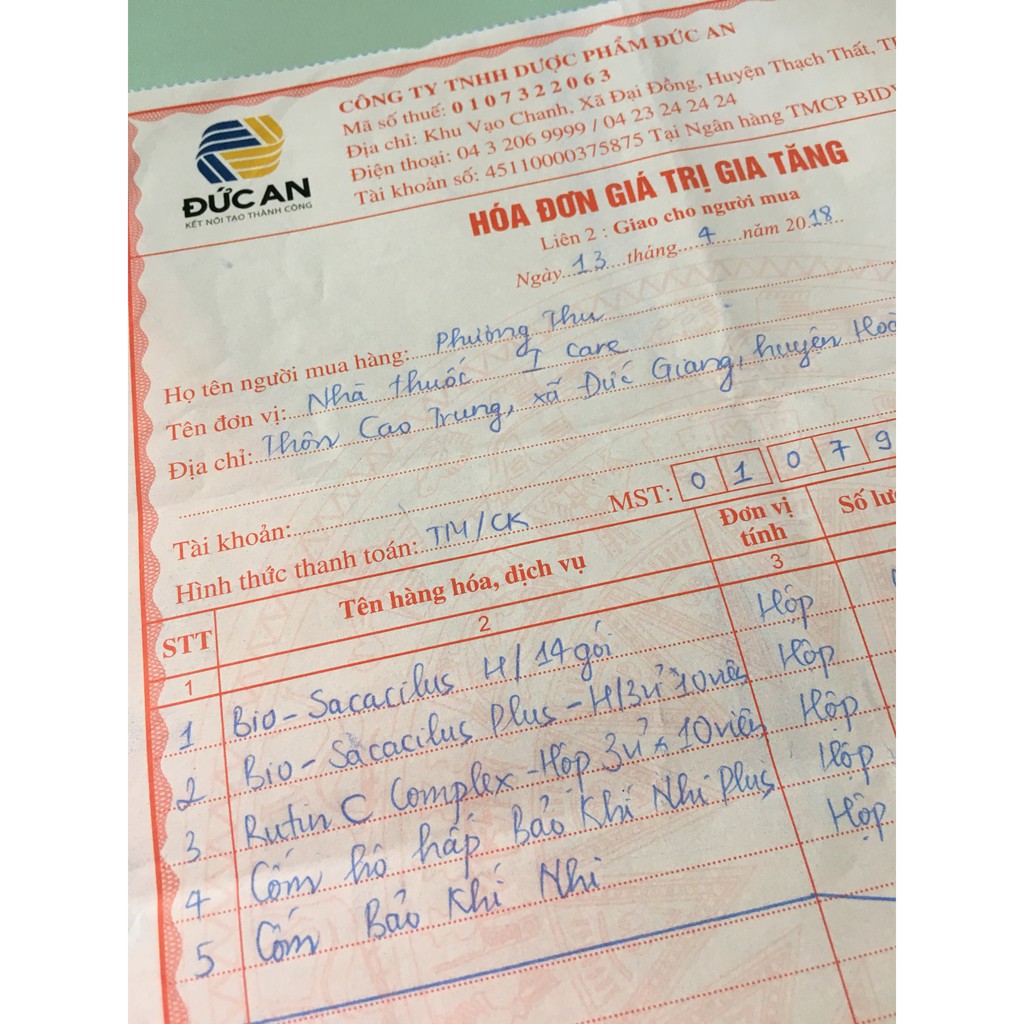 CÔNG TY TNHH DƯỢC PHẨM ĐỨC AN
Mã số thuế: 0107322063
Địa chỉ: Khu Vạo Chanh, Xã Đại Đồng, Huyện Thạch Thất,
Điện thoại: 04 3 206 9999 / 04 23 24 24 24
Tài khoản số: 45110000375875 Tại Ngân hàng TMCP BIDV
ĐỨC AN
KẾT NỐI TẠO THÀNH CÔNG
HÓA ĐƠN GIÁ TRỊ GIA TĂNG
Liên 2 : Giao cho người mua
Ngày 13 tháng 4 năm 2018
Họ tên người mua hàng: Phường Thu
Tên đơn vị: Nhà thuốc I care
Địa chỉ: Thôn Cao Trung, xã Đức Giang, huyện Hoà
Tài khoản:
Hình thức thanh toán: TM/CK MST: 01079
STT Tên hàng hóa, dịch vụ Đơn vị tính Số
1 2 3
1 Bio-Sacacilus H/14gói Hộp
2 Bio-Sacacilus Plus-H/3vỉ*10viên Hộp
3 Rutin C Complex-Hộp 3vỉ x 10viên Hộp
4 Cốm hô hấp Bảo Khí Nhi Plus Hộp
5 Cốm Bảo Khí Nhi Hộp